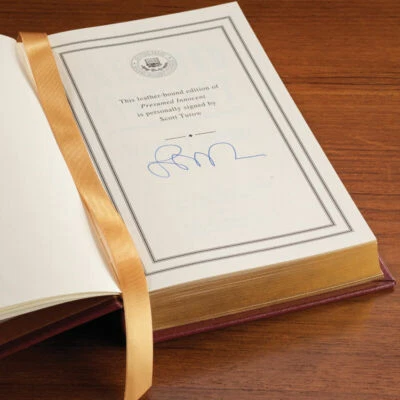 This leather-bound edition of
Presumed Innocent
is personally signed by
Scott Turow